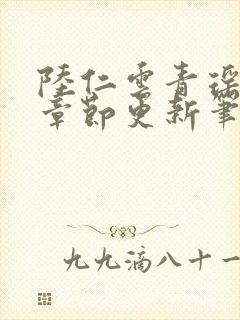 陸仁雲青瑶
章節更新筆
九九滴八十一